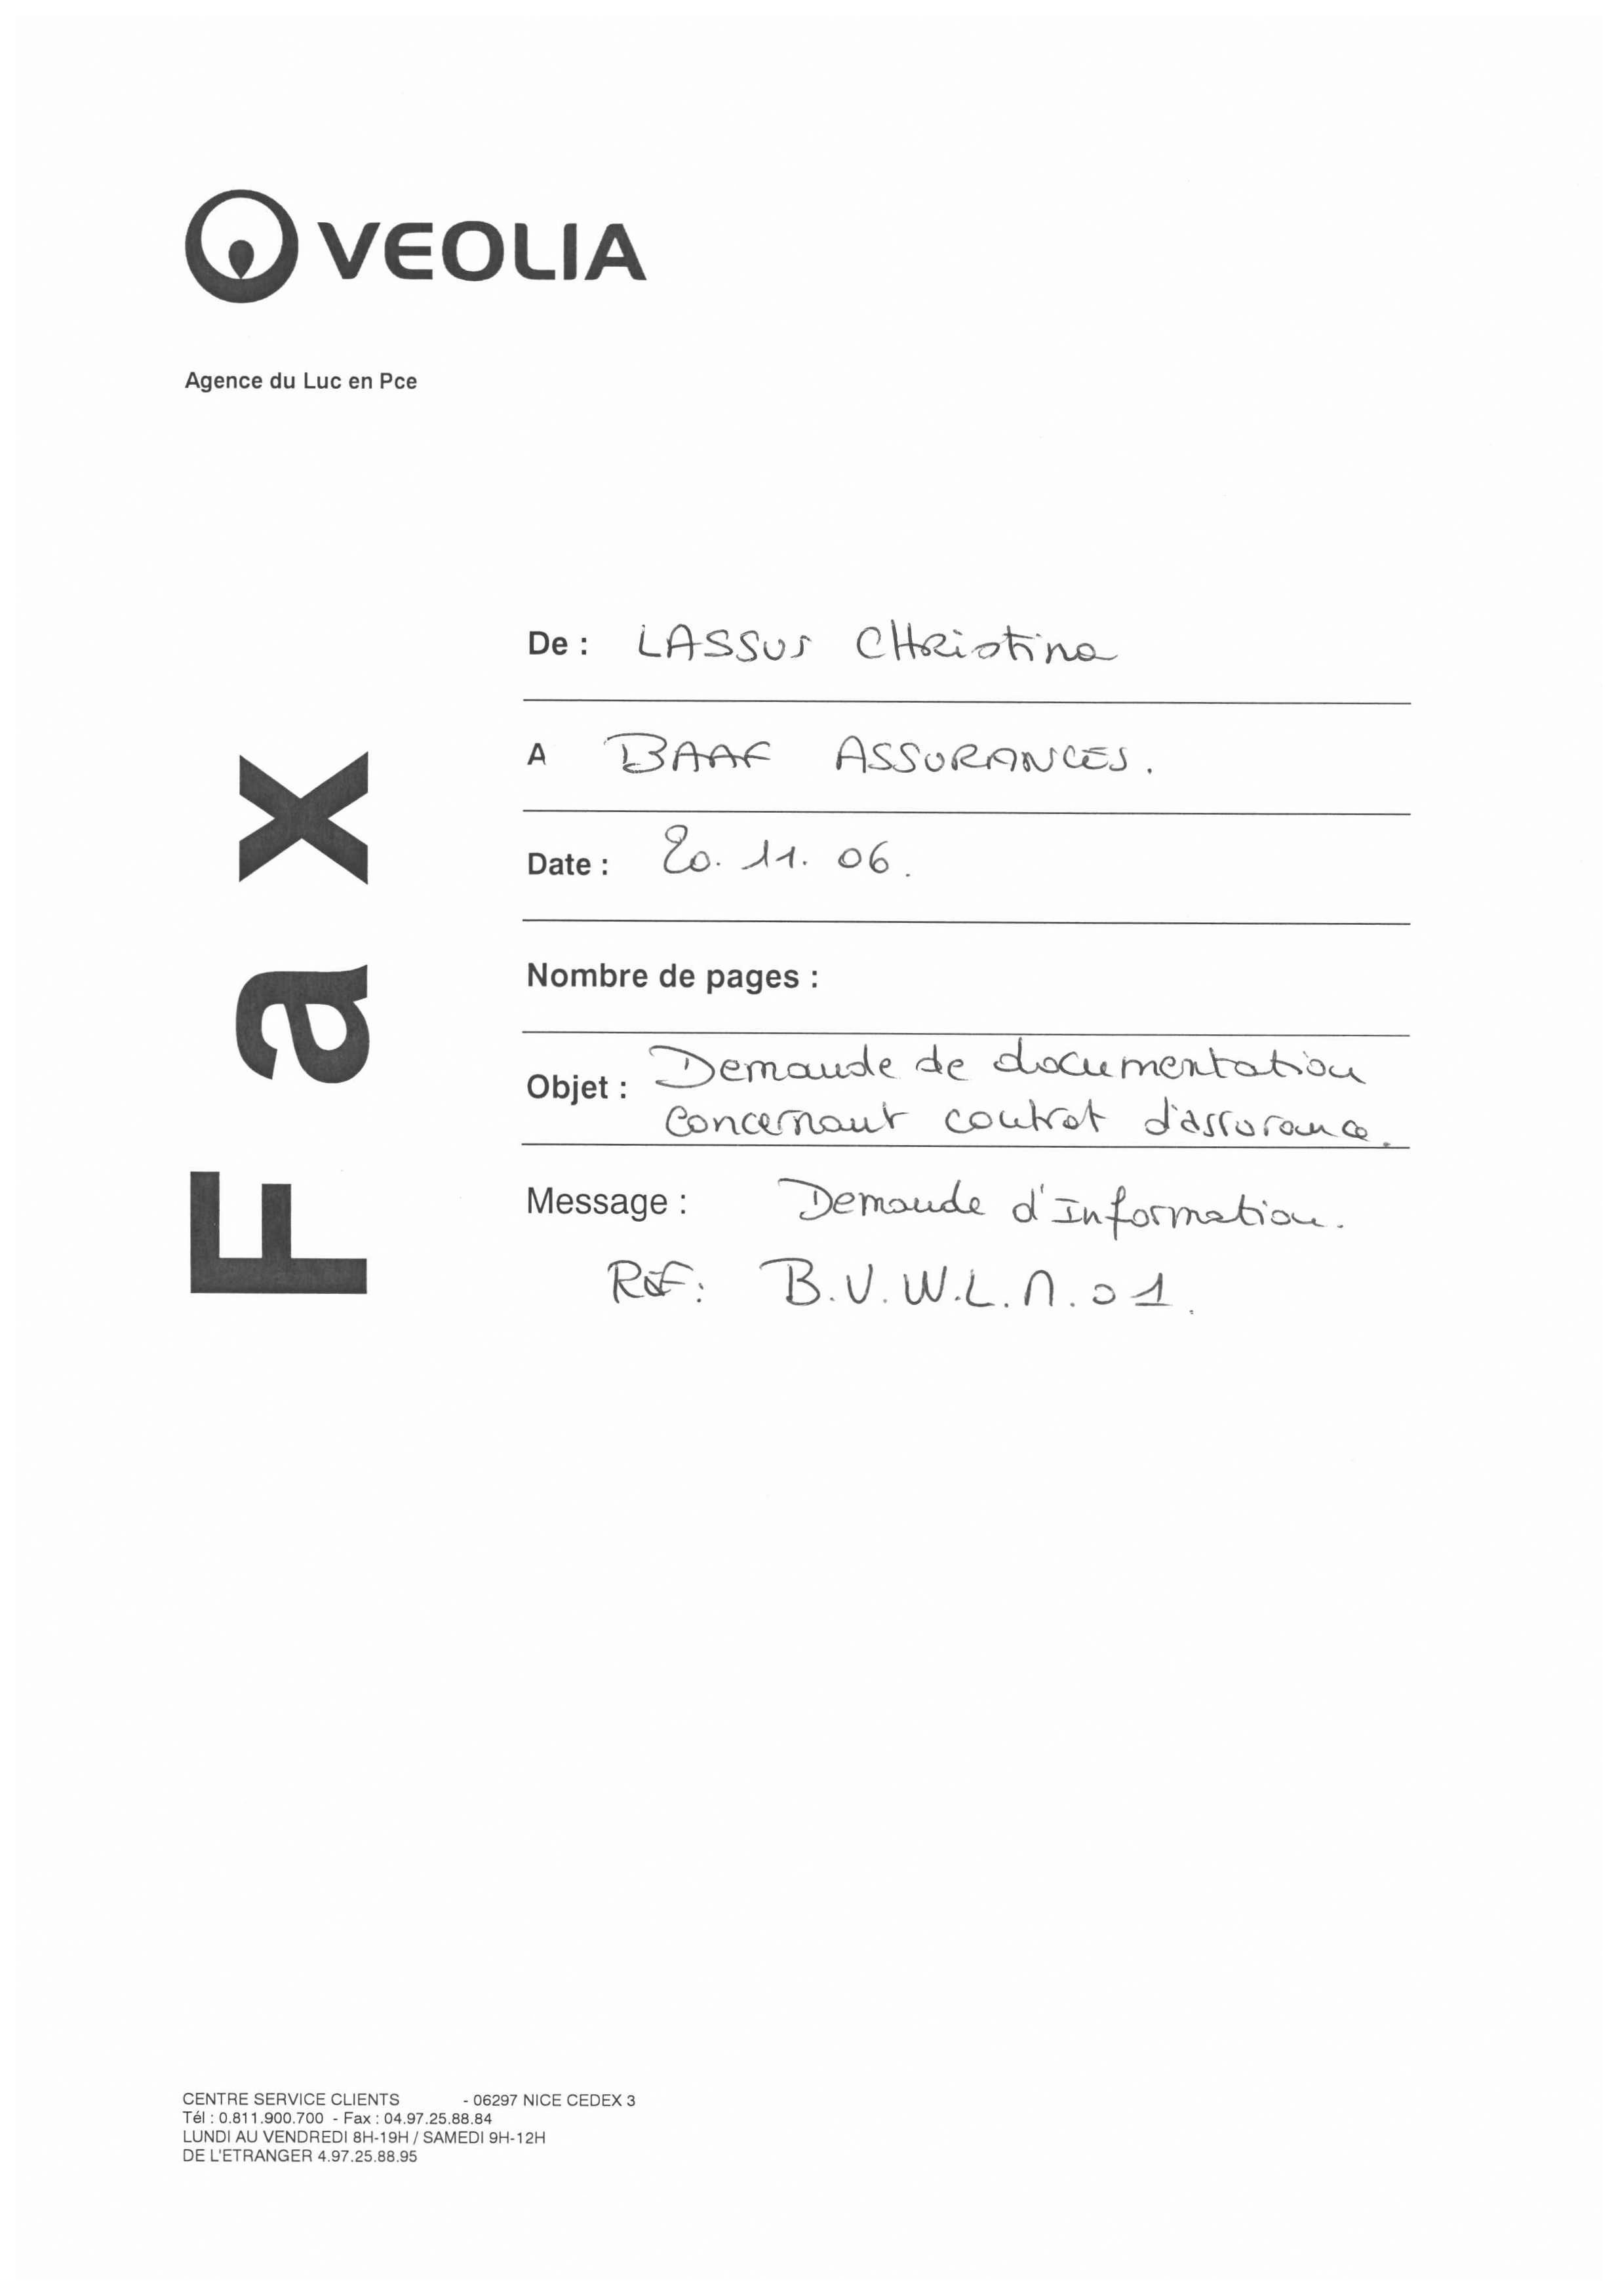 VEOLIA
Agence du Luc en Pce
Fax
De : LASSUS CHRistina
A BAAF ASSURANCES.
Date : 20. 11. 06.
Nombre de pages :
Objet : Demande de documentation
concernant contrat d'assurance.
Message : Demande d'Information.
Réf: B.V.W.L.N.01.
CENTRE SERVICE CLIENTS - 06297 NICE CEDEX 3
Tél : 0.811.900.700 - Fax : 04.97.25.88.84
LUNDI AU VENDREDI 8H-19H / SAMEDI 9H-12H
DE L'ETRANGER 4.97.25.88.95